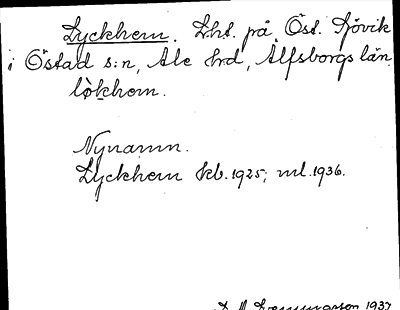 Lyckhem. Lht. på Öst. Sjövik
i Östad s:n, Ale hrd, Älfsborgs län.
lȯkhem.
Nynamn.
Lyckhem kb. 1925; ml. 1936.
1937